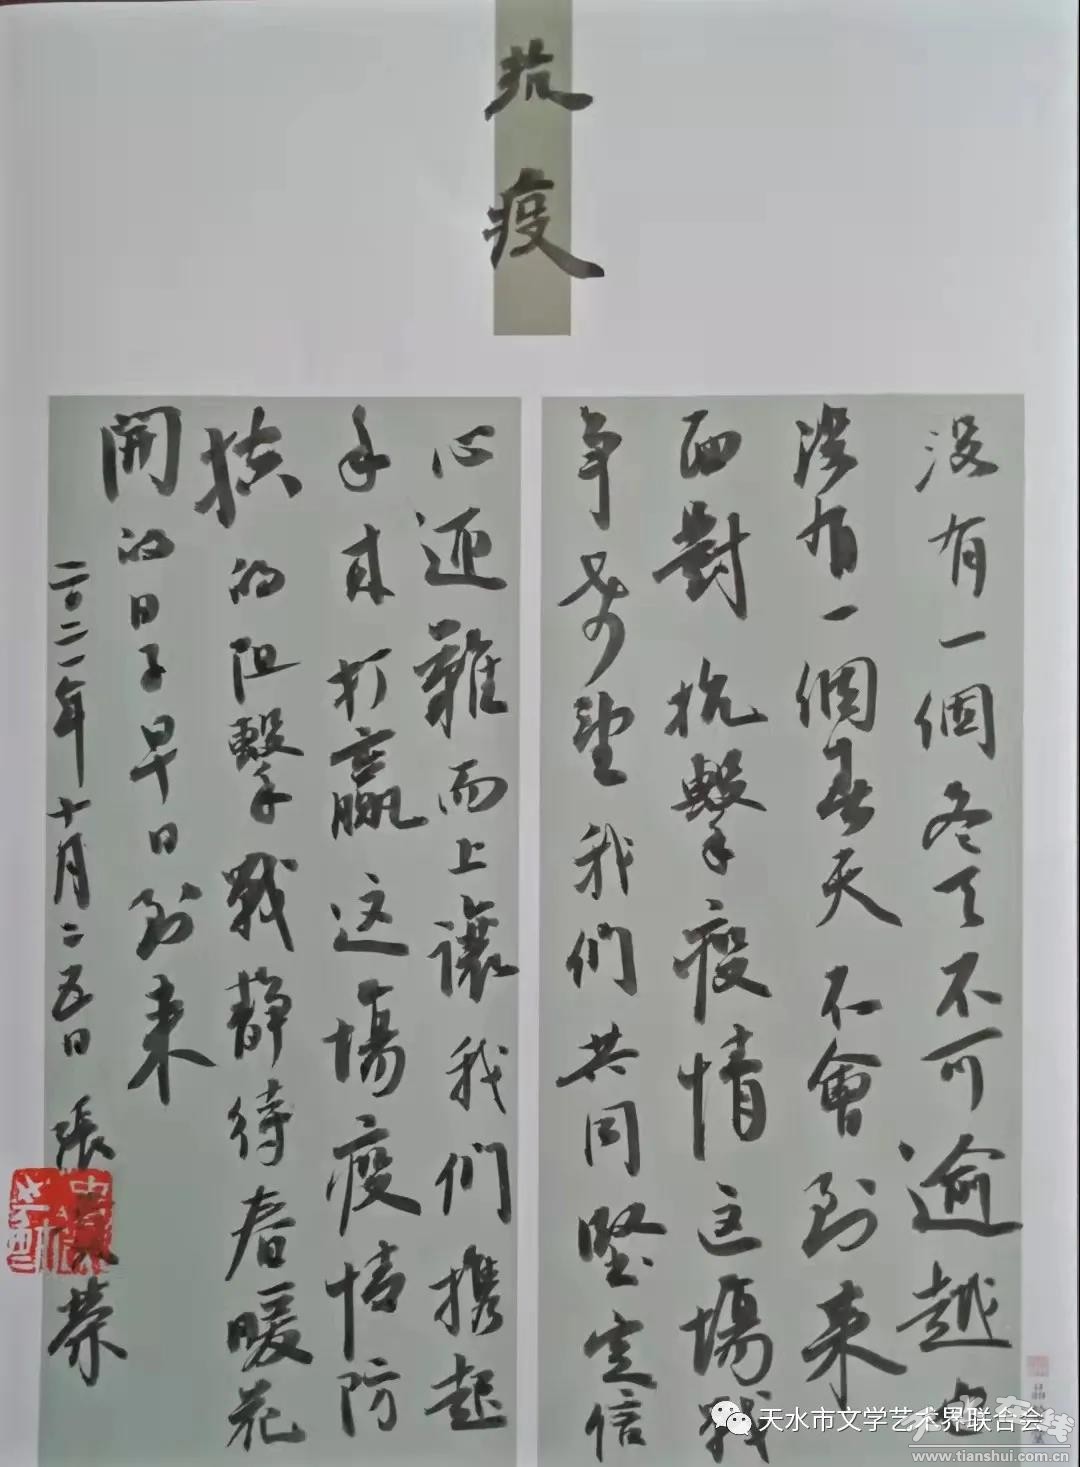 抗疫
没有一個冬天不可逾越也
沒有一個春天不會到来
面對抗擊疫情这場戰
争希望我們共同堅定信
心迎難而上讓我們携起
手来打贏这場疫情防
控的阻擊戰静待春暖花
開的日子早日到来
二〇二一年十月二五日 張
榮
天水市文学艺术界联合会
天水在线
www.tianshui.com.cn